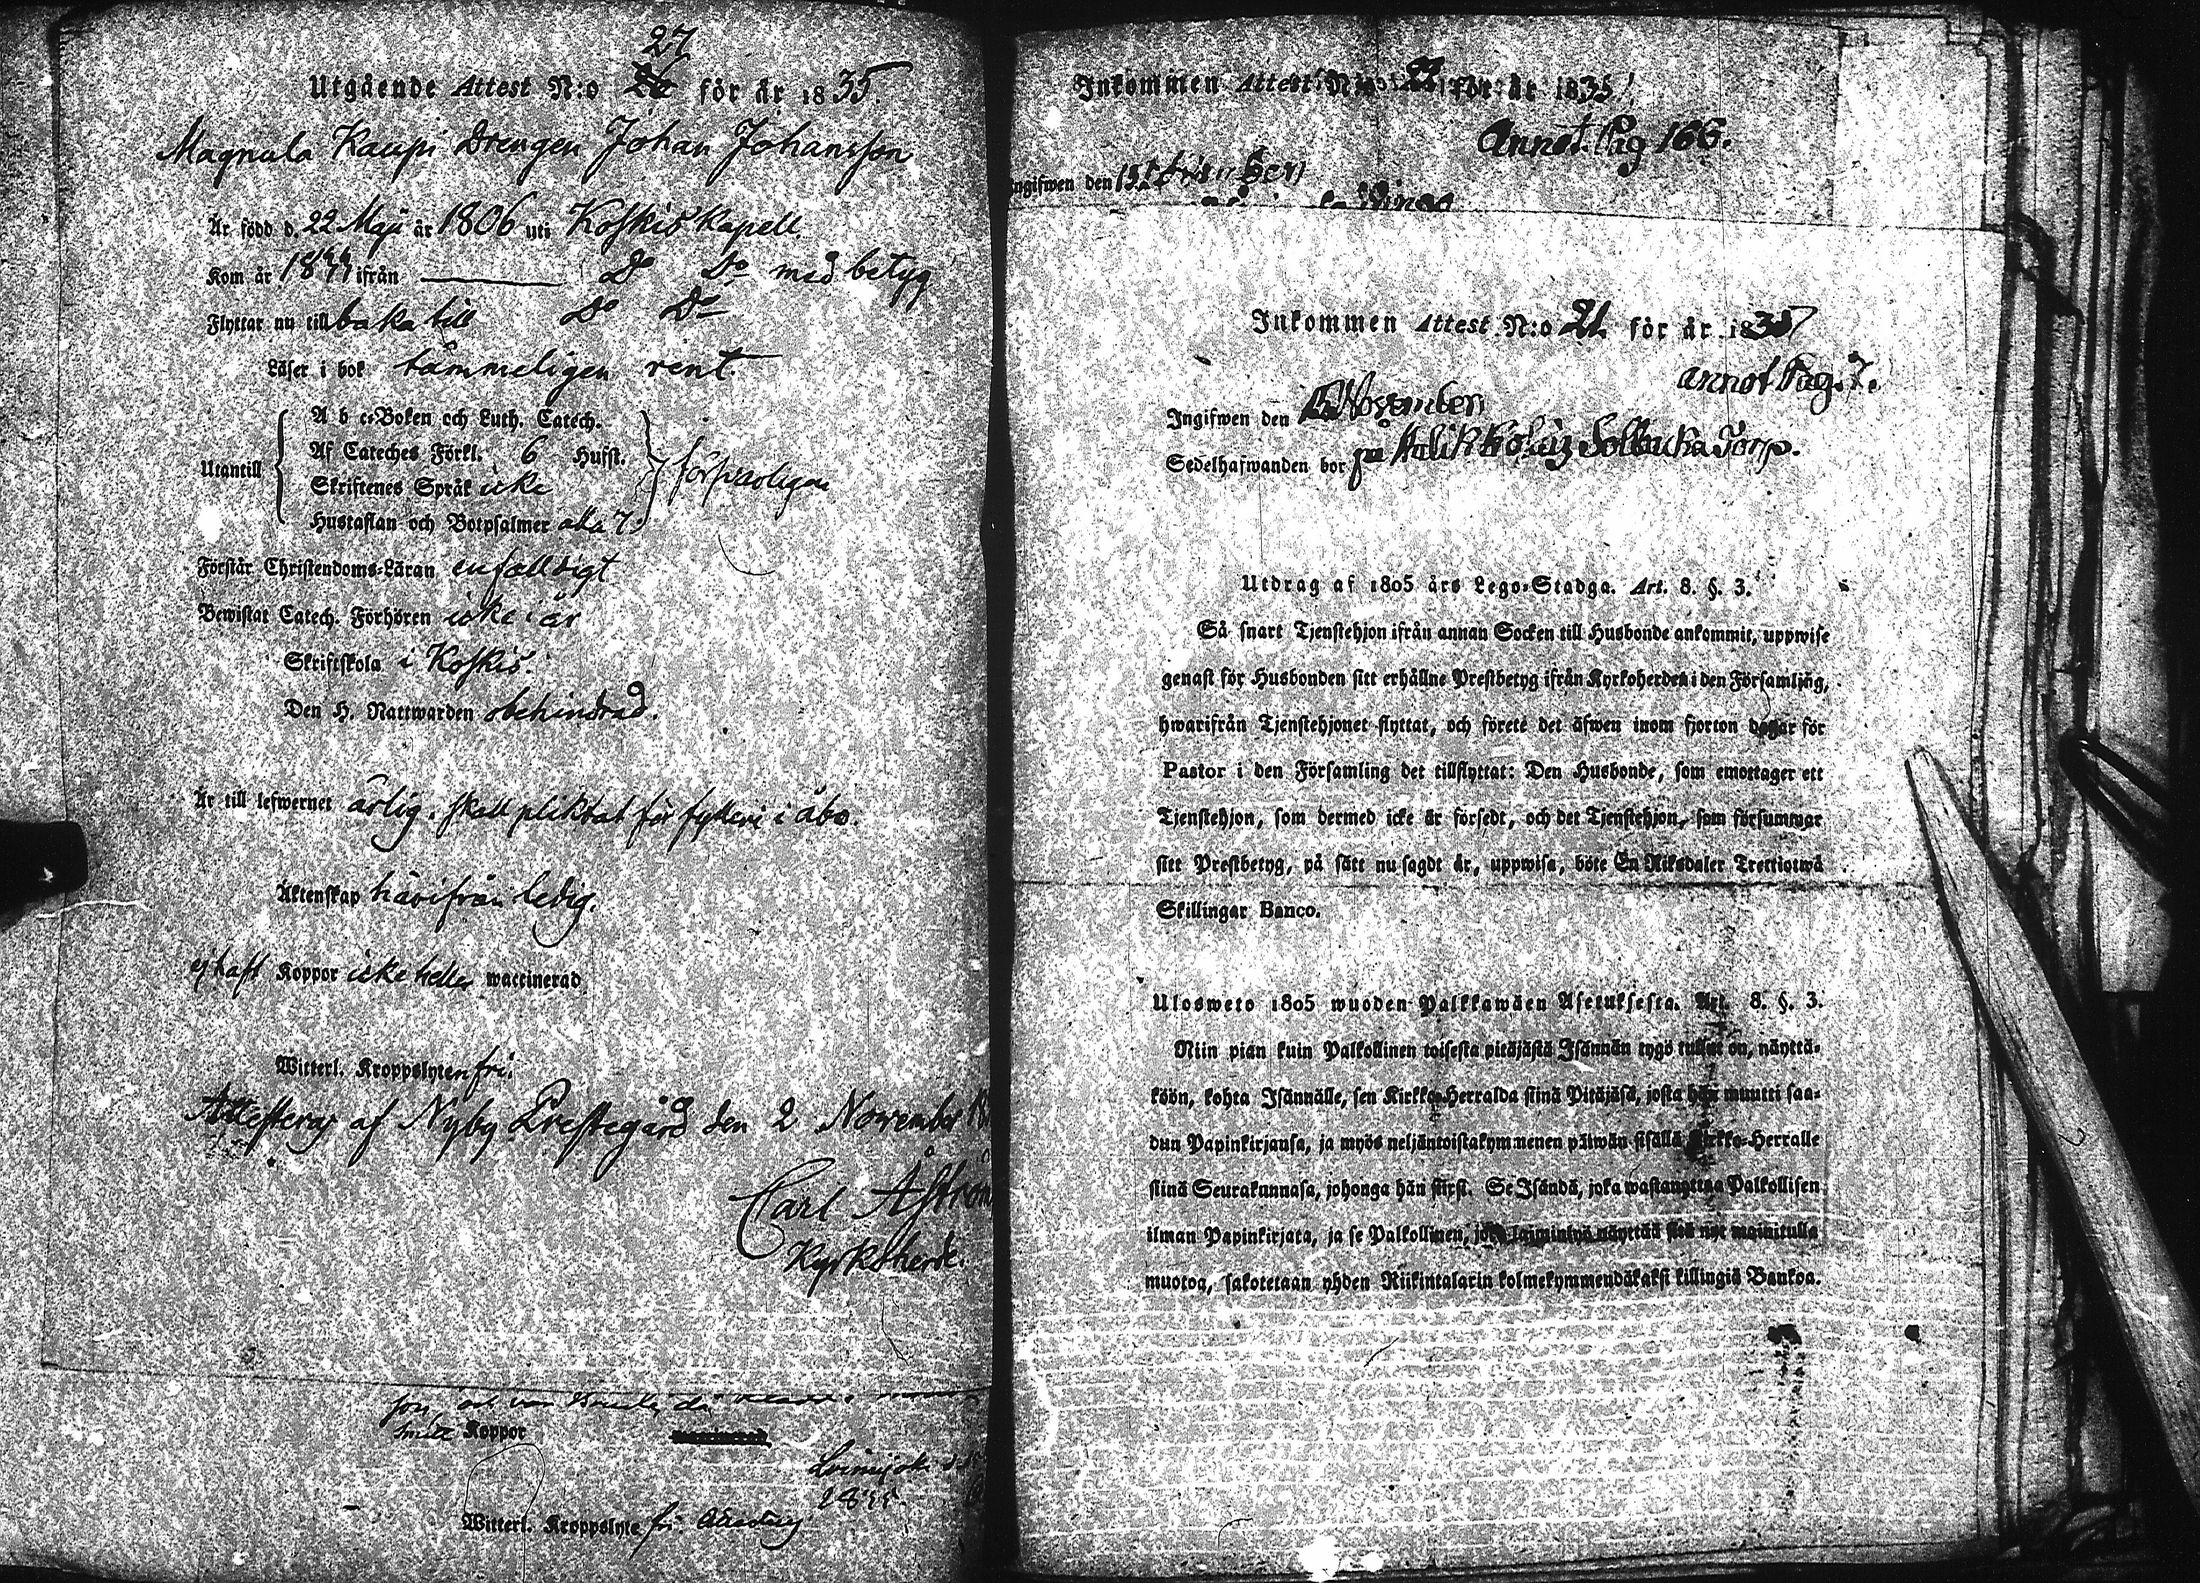 27
Utgående Attest N:o 26 för år 1835.
Magnula Kaupi Drengen Johan Johansson
Är född d. 22 Maji år 1806 uti Koskis Kapell.
Kom år 18 ifrån Do Do med betyg
Flyttar nu till baka till Do Do
Läser i bok tämmeligen rent.
A b c-Boken och Luth. Catech.
Af Cateches Förkl. 6 Hufst.
Utantill
Skriftenes Språk icke
Hustaflan och Botpsalmer alla 7.
Förstår Christendoms-Läran enfalldigt
Bewistat Catech. Förhören icke i år
Skriftskola i Koskis.
Den H. Nattwarden obehindrad.
Är till lefwernet ärlig. skall pliktat för fylleri i Åbo.
Äktenskap härifrån ledig.
ej haft Koppor icke heller waccinerad
Witterl. Kroppslyten fri.
Attesteras af Nyby Prestegård den 2 November
Carl Åström
Kyrkoherde.
Koppor
Witterl. Kroppslyte fri.
Inkommen Attest N:o 22 för år 1835.
Annot. Pag 166.
Ingifwen den
Inkommen Attest N:o 21 för år 1835
annot Pag. 7.
Ingifwen den 15 November
Sedelhafwanden bor på Torp.
Utdrag af 1805 års Lego-Stadga. Art. 8. §. 3.
Så snart Tjenstehjon ifrån annan Socken till Husbonde ankommit, uppwise
genast för Husbonden sitt erhållne Prestbetyg ifrån Kyrkoherden i den Församling,
hwarifrån Tjenstehjonet flyttat, och förete det äfwen inom fjorton dagar för
Pastor i den Församling det tillflyttat: Den Husbonde, som emottager ett
Tjenstehjon, som dermed icke är försedt, och det Tjenstehjon, som försummar
sitt Prestbetyg, på sätt nu sagdt är, uppwisa, böte En Riksdaler Trettiotwå
Skillingar Banco.
Ulosweto 1805 wuoden Palkkawäen Asetuksesta. Art. 8. §. 3.
Niin pian kuin Palkollinen toisesta pitäjästä Isännän tygö tullut on, näyttä-
köön, kohta Isännälle, sen Kirkko-Herralda siinä Pitäjäsä, josta hän muutti saa-
dun Papinkirjansa, ja myös neljäntoistakymmenen päiwän sisällä Kirkko-Herralle
siinä Seurakunnasa, johonga hän siirsi. Se Isändä, joka wastanottaa Palkollisen
ilman Papinkirjata, ja se Palkollinen, joka laiminlyö näyttää sitä nyt mainitulla
muotoa, sakotetaan yhden Riikintalarin kolmekymmendäkaksi killingiä Bankoa.